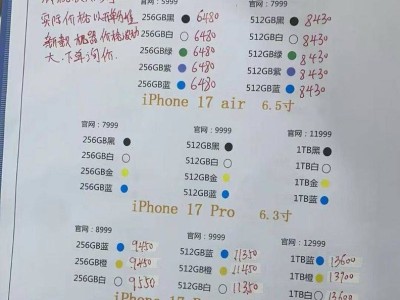 官网：5999 官网：7999
实际价格以下单为准
新款机器价格波动
大、下单询价.
256GB黑 6480 512GB黑 8430
256GB白 6480 512GB白 8430
256GB绿 6480 512GB绿 8430
256GB紫 6480 512GB紫 8430
256GB蓝 6480 512GB蓝 8430
iPhone 17 air 6.5寸
官网：7999 官网：9999 官网：11999
256GB黑 512GB黑 1TB黑
256GB白 512GB白 1TB白
256GB金 512GB金 1TB金
256GB蓝 512GB蓝 1TB蓝
iPhone 17 Pro 6.3寸
官网：8999 官网：9999 官网：12999
256GB蓝 9450 512GB蓝 11350 1TB蓝 13600
256GB橙 9450 512GB橙 11450 1TB橙 13700
256GB白 9550 512GB白 11350 1TB白 13600